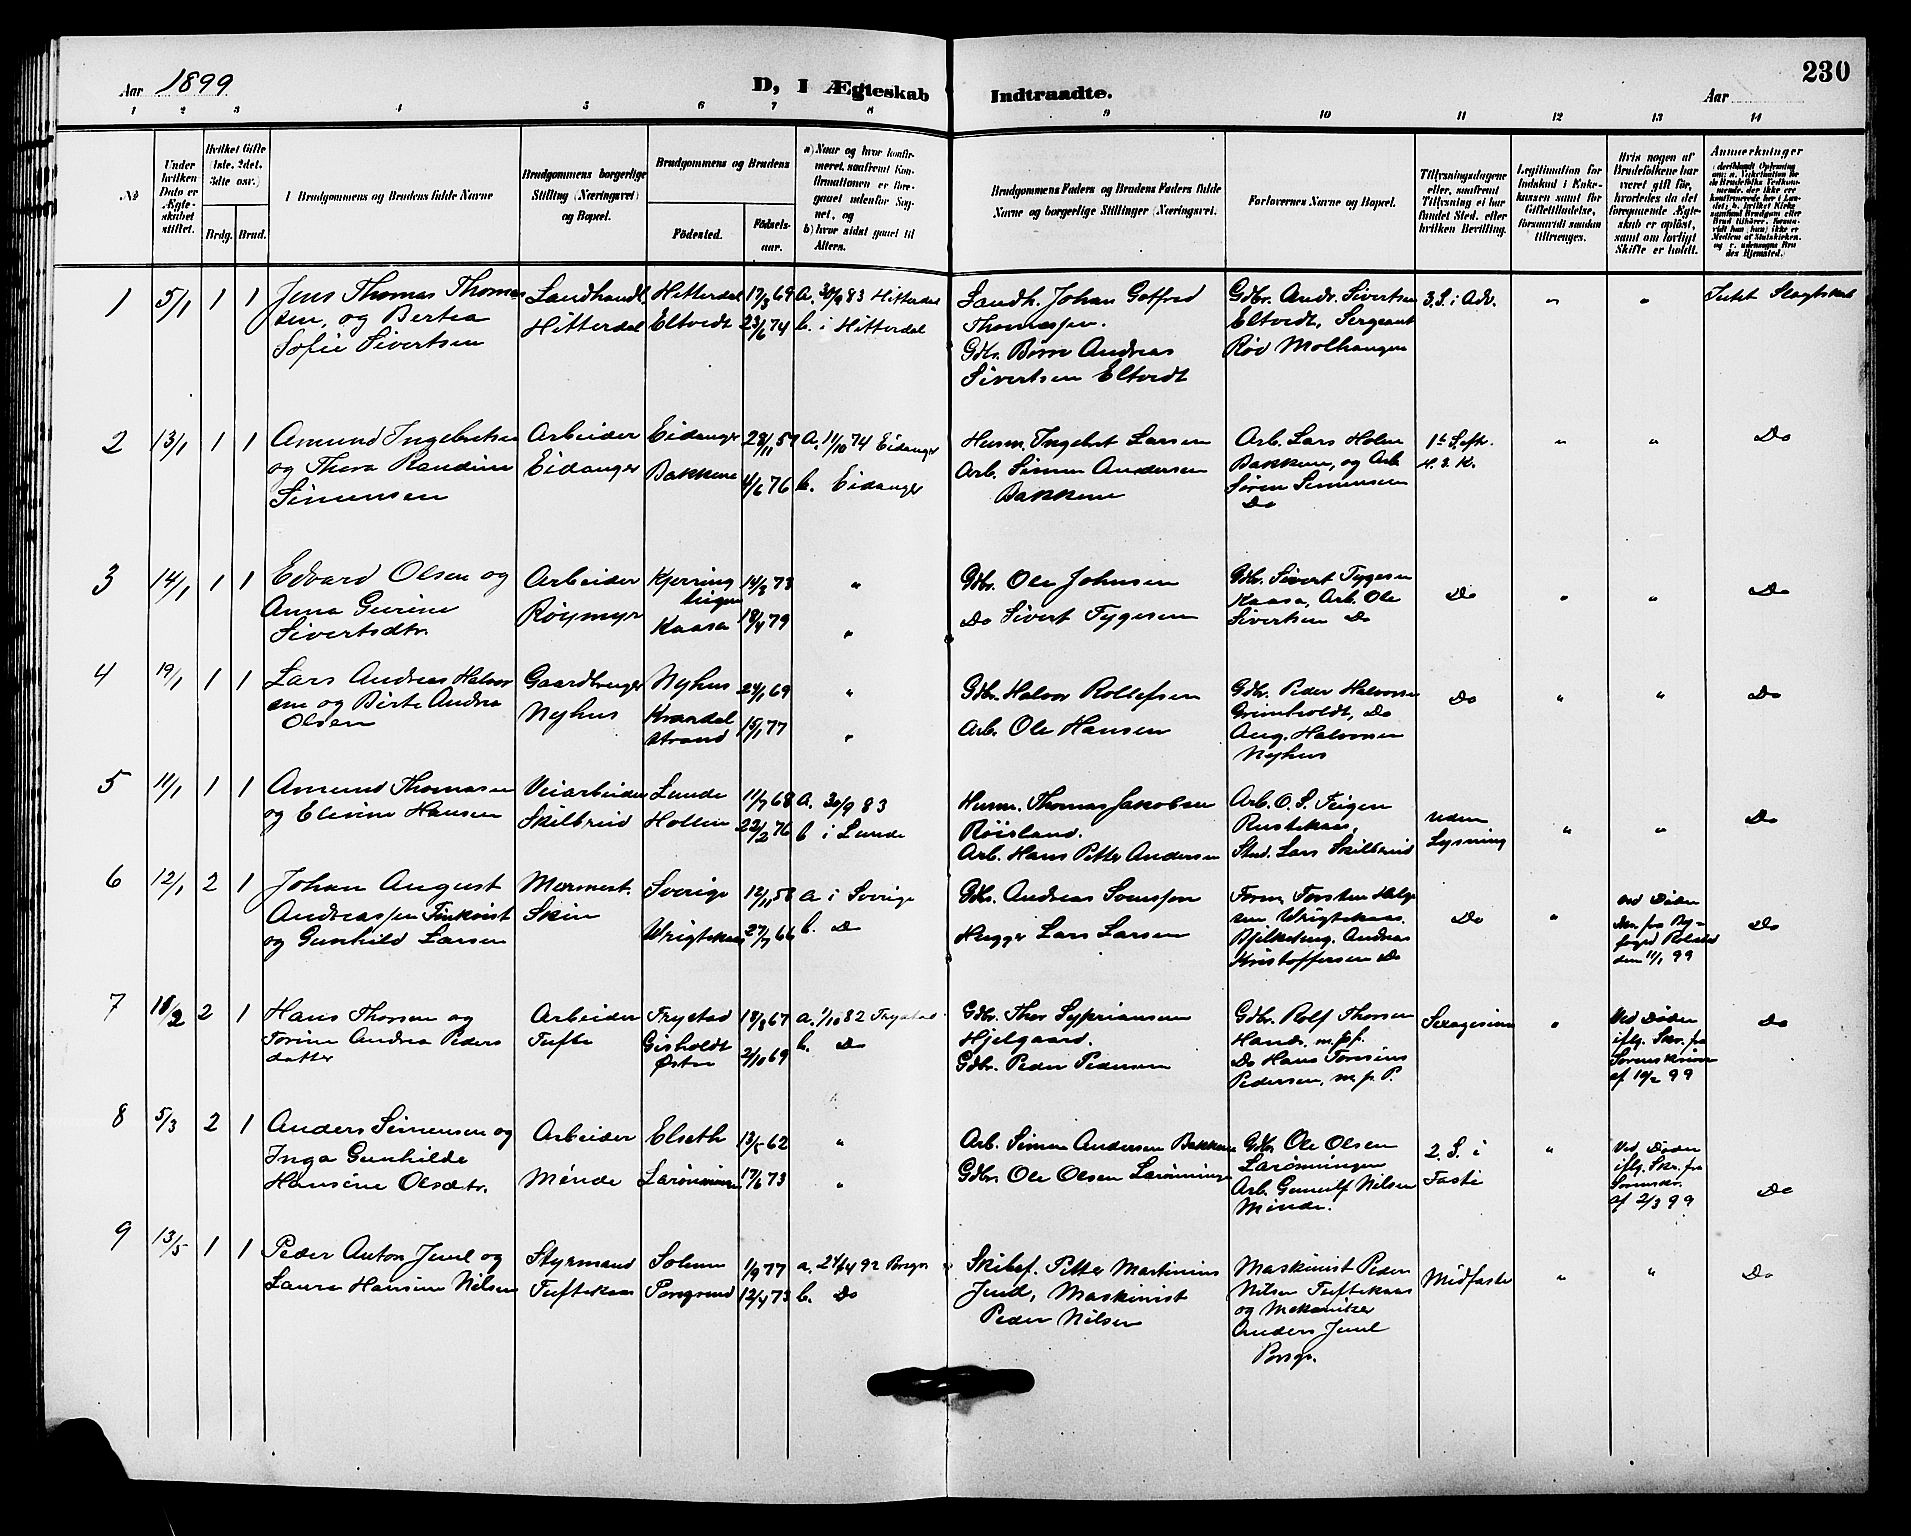 230
Aar 1899
D, I Ægteskab Indtraadte.
Aar
1 2 3 4 5 6 7 8 9 10 11 12 13 14
No
Under hvilken Dato er Ægteskabet stiftet.
Hvilket Gifte (1ste, 2det, 3die osv.)
Brdg. Brud.
Brudgommens og Brudens fulde Navne
Brudgommens borgerlige Stilling (Næringsvei) og Bopæl.
Brudgommens og Brudens
Fødested.
Fødselsaar.
a) Naar og hvor konfirmeret, saafremt Konfirmationen er foregaaet udenfor Sognet, og
b) hvor sidst gaaet til Alters.
Brudgommens Faders og Brudens Faders fulde Navne og borgerlige Stillinger (Næringsvei).
Forlovernes Navne og Bopæl.
Tillysningsdagene eller, saafremt Tillysning ei har fundet Sted, efter hvilken Bevilling.
Legitimation for Indskud i Enkekassen samt for Giftetilladelse, forsaavidt saadan tiltrænges.
Hvis nogen af Brudefolkene har været gift før, hvorledes da det foregaaende Ægteskab er opløst, samt om lovligt Skifte er holdt.
Anmerkninger
1 5/1 1 1
Jens Thomas Thomas
sen, og Bertea
Sofie Sivertsen
Landhandl.
Hitterdal
Hitterdal 17/3 69
Eltvedt 23/6 74
a. 30/9 83 Hitterdal
b. i Hitterdal
Landh. Johan Gotfred
Thomassen.
Gdbr. Børre Andreas
Sivertsen Eltvedt
Gdbr. Andr. Sivertsen
Eltvedt, Sergeant
Røv Molhaugen
3. S. i Adv.
" "
Ikke Slegtskab
2 13/1 1 1
Amund Ingebretsen
og Thora Randine
Simensen
Arbeider
Eidanger
Eidanger 28/11 57
Bakkene 4/6 76
a. 11/10 74 Eidanger
b. Eidanger
Husm. Ingebret Larsen
Arb. Simen Andersen
Bakkene
Arb. Lars Holm
Bakkene, og Arb.
Søren Simensen
Do
1ste S. eft.
H. 3. K.
" "
Do
3 14/1 1 1
Edvard Olsen og
Anna Gurine
Sivertsdtr.
Arbeider
Røymyr
Kjerring
teigen 14/3 73
Kaasa 18/4 79
"
"
Gdbr. Ole Johnsen
Do Sivert Tygesen
Gdb. Sivert Tygesen
Kaasa, Arb. Ole
Sivertsen Do
Do
" "
Do
4 19/1 1 1
Lars Andreas Halvor
sen og Birte Andrea
Olsen
Gaardbruger
Nyhus
Nyhus 24/1 69
strand 15/1 77
"
"
Gdbr. Halvor Rollefsen
Arb. Ole Hansen
Gdbr. Peder Halvorsen
Grimholdt, Do
Aug. Halvorsen
Nyhus
Do
" "
Do
5 11/1 1 1
Amund Thomasen
og Elevine Hansen
Veiarbeider
Skilbreid
Lunde 11/7 68
Hollen 22/2 76
a. 30/9 83
b i Lunde
Husm. Thomas Jakobsen
Røisland.
Arb. Hans Petter Andersen
Arb. O. S. Teigen
Rustekaas,
Stud. Lars Skilbreid
uden
Lysning
" "
Do
6 12/1 2 1
Johan August
Andreassen Finkvist
og Gunhild Larsen
Murmest.
Skien
Sverige 12/11 58
Wrigtekaas 27/7 66
a i Sverige
b. Do
Gdbr. Andreas Svensson
Hugger Lars Larsen
Form. Torsten Helge
sen, Wrigtekaas.
Andreas
Kristoffersen Do
Do
"
ved Døden
Skr. fra By-
foged
den 11/1 99
Do
7 18/2 2 1
Hans Thorsen og
Torine Andrea Peders
datter
Arbeider
Tufte
Trystad 18/8 67
Gisholdt
Østre 2/10 69
a. 1/10 82 Trystad
b. Do
Gdbr. Thor Sypriansen
Hjelgaard.
Gdbr. Peder Pedersen
Gdbr. Rolf Thorsen
m. p. p.
Do Hans Torsius
Pedersen, m. p. P.
Sexagesima
"
Ved Døden
iflg. Skr. fra
Sorenskriver
af 10/2 99
Do
8 5/3 2 1
Anders Simensen og
Inga Gunhilde
Hansine Olsdtr.
Arbeider
Mende
Elseth 13/5 62
Larønningen 17/6 73
"
"
Arb. Simen Andersen Bakkene
Gdbr. Ole Olsen Larønningen
Gdbr. Ole Olsen
Larønningen
Arb. Gunulf Nilsen
Minde.
2. S. i
Faste
"
Ved Døden
iflg. Skr. fra
Sorenskr.
af 2/3 99
Do
9 13/5 1 1
Peder Anton Juul og
Laura Hansine Nilsen
Styrmand
Tuftekaas
Solum 1/9 77
Porsgrund 12/4 73
a. 24/4 92 Porsgr
b. Do
Skibsf. Petter Martinius
Juul, Maskinist
Peder Nilsen
Maskinist Peder
Nilsen Tuftekaas
og Mekaniker
Anders Juul
Porsgr.
Midfaste
" "
Do